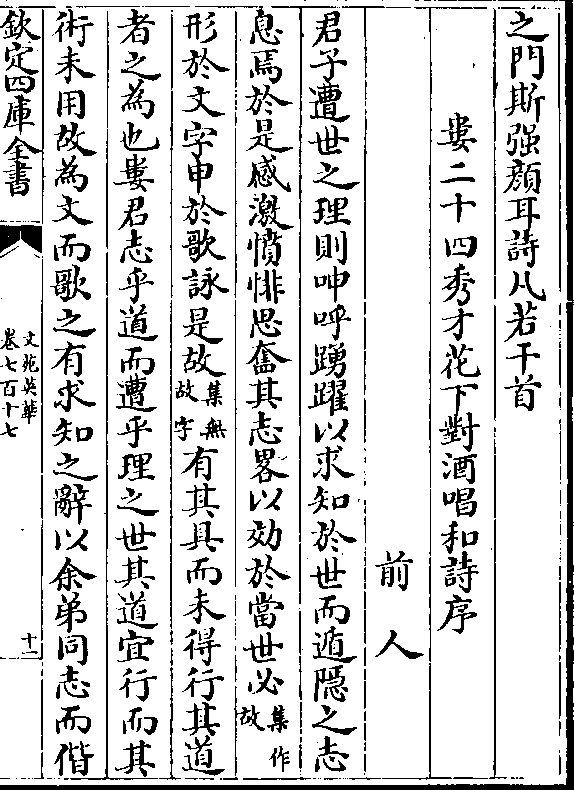 之門斯强顔耳詩凡若干首
婁二十四秀才花下對酒唱和詩序
前人
君子遭世之理則呻呼踴躍以求知於世而遁隠之志
息焉於是感激憤悱思奮其志畧以効於當世必集作故
形於文字申於歌詠是故集無故字有其具而未得行其道
者之為也婁君志乎道而遭乎理之世其道宜行而其
術未用故為文而歌之有求知之辭以余弟同志而偕
欽定四庫全書
文苑英華
卷七百十七
十一